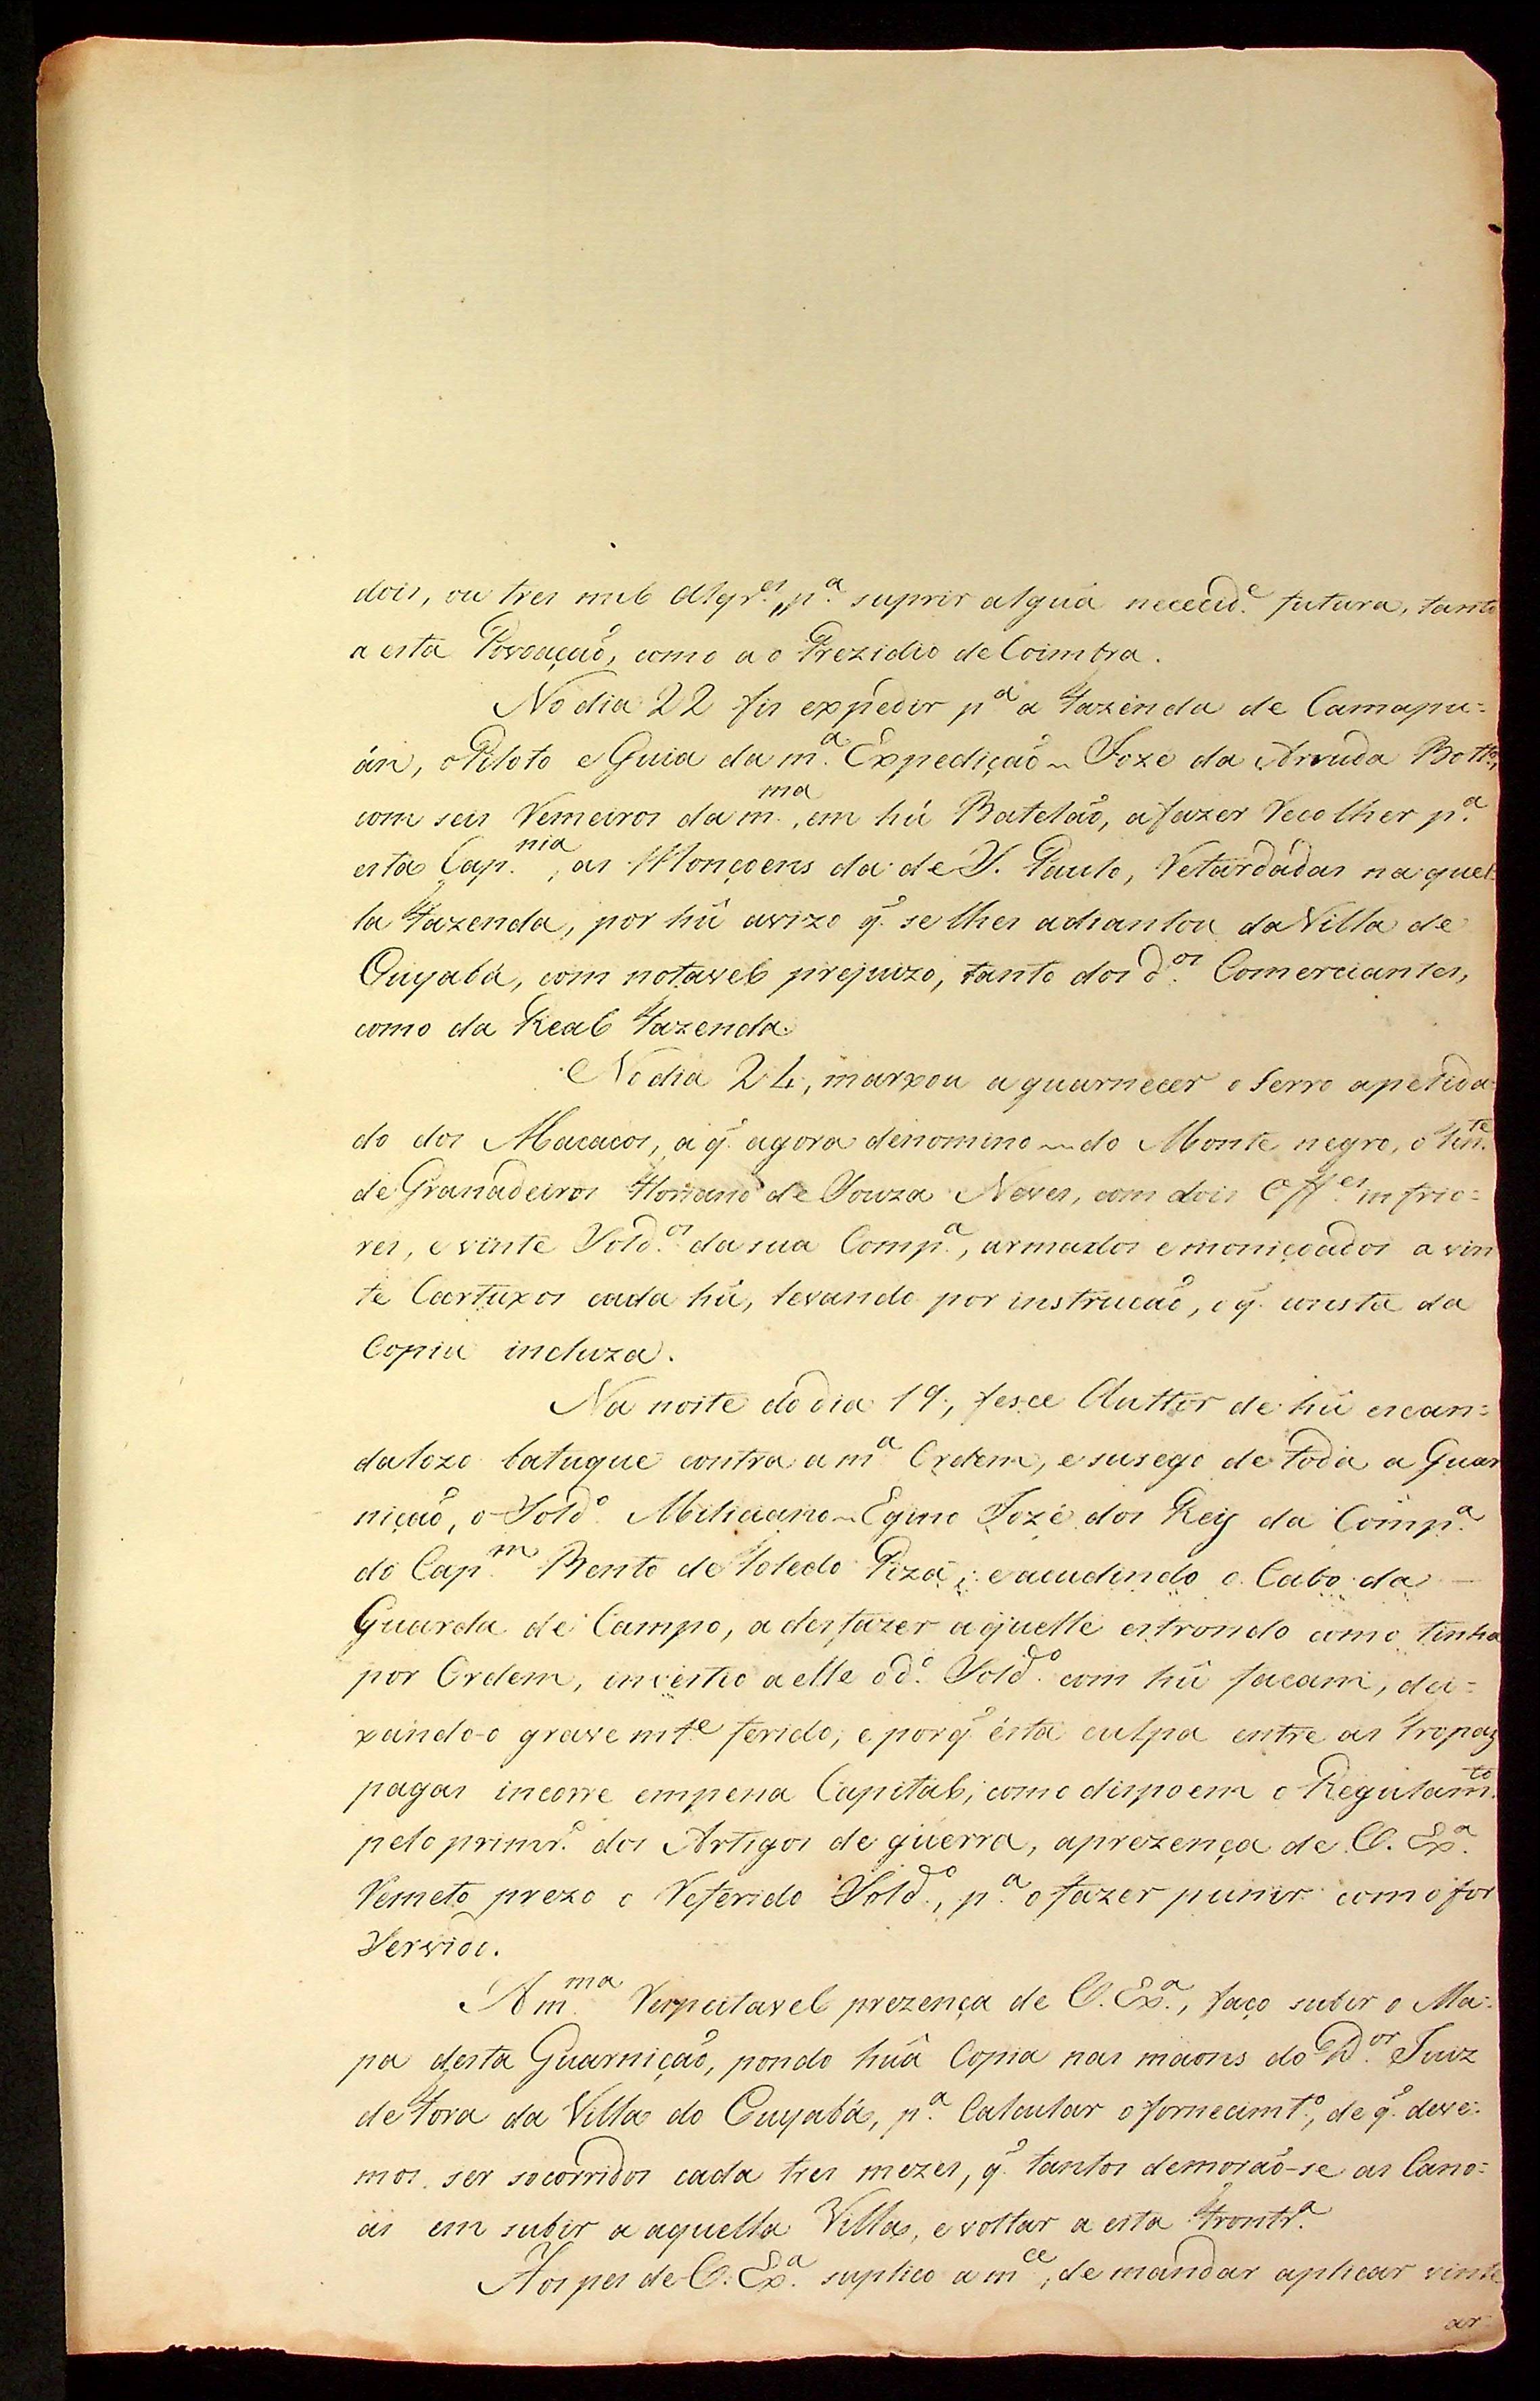 dois, ou tres mil Alqr.es, p.a suprir alguã nececid.e futura, tanto
a esta Povoação, como ao Prezidio de Coimbra.
No dia 22 fis expedir p.a a Fazenda de Camapu=
án, o Piloto e Guia da m.a Expedição ~ Joze da Arruda Bott.o,
com seis Remeiros da m.ma, em hú Batelão, a fazer recolher p.a
esta Cap.nia, as Monçoens da de S. Paulo, Retardádas naquel=
la Fazenda, por hû avizo q̃ se lhes adiantou da Villa de
Cuyabá, com notavel prejuizo, tanto dos d.os Comerciantes,
como da Real Fazenda.
No dia 24, marxou a guarnecer o serro apelida=
do dos Macacos, a q̃ agora denomino ~ do Monte negro, o Ten.te
de Granadeiros Floriano de Souza Neves, com dois Off.es infrio=
res, e vinte Sold.os da sua Comp.a, armados e moniçoados a vin
te Cartuxos cada hû, levando por instrucão, o q̃ consta da
Copia incluza.
Na noite do dia 19, fesce Auttor de hû escan=
dalozo batuque contra a m.a Ordem, e susego de toda a Guar
nição, o Sold.o Miliciano ~ Egino Jozé dos Reys da Comp.a
do Cap.m Bento de Toledo Piza; e acudindo o Cabo da
Guarda de Campo, a desfazer aquelle estrondo como tinha
por Ordem, investio a elle o d.o Sold.o com hû facam, dei=
xando-o gravemt.e ferido; e porq̃ ésta culpa entre as Tropas
pagas incorre em pena Capital, como dispoem o Regulam.to
pelo primr.o dos Artigos de guerra, a prezença de V. Ex.a
Remeto prezo o Referido Sold.o, p.a o fazer punir como for
Servido.
A m.ma Respeitavel prezença de V. Ex.a, faço subir o Ma=
pa desta Guarnição, pondo huã Copia nas maons do D.or Juiz
de Fora da Villa do Cuyabá, p.a Calcular o fornecimt.o, de q̃ deve=
mos ser socorridos cada tres mezes, q̃ tantos demorão-se as Cano=
as em subir a aquella Villa, e voltar a esta Frontr.a
Aos pes de V. Ex.a suplico a m.ce, de mandar aplicar vinte
ar